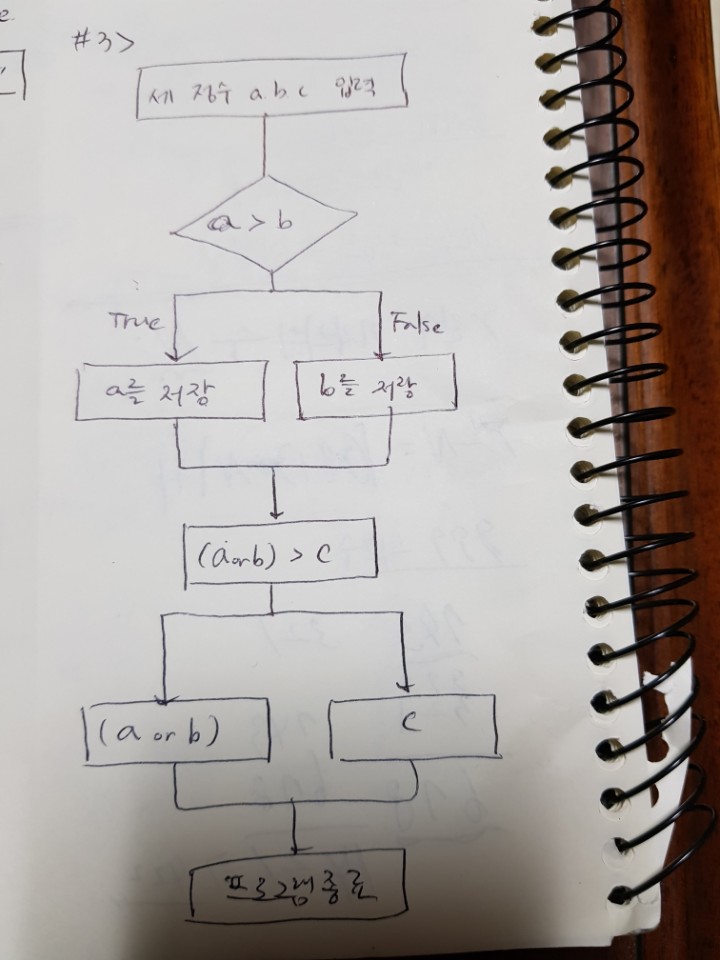 #3>
세 정수 a b c 입력
a > b
True
False
a를 저장
b를 저장
(a or b) > c
(a or b)
c
프로그램종료